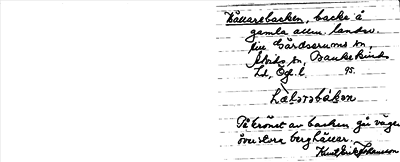 Kållarebacken, backe å
gamla allm. landsv.
till Gårdserums sn,
Åtvids sn, Bankekinds
hd, Ögl. l. 95.
På krönet av backen går vägen
över stora berghällar.
Knut Erik Johansson